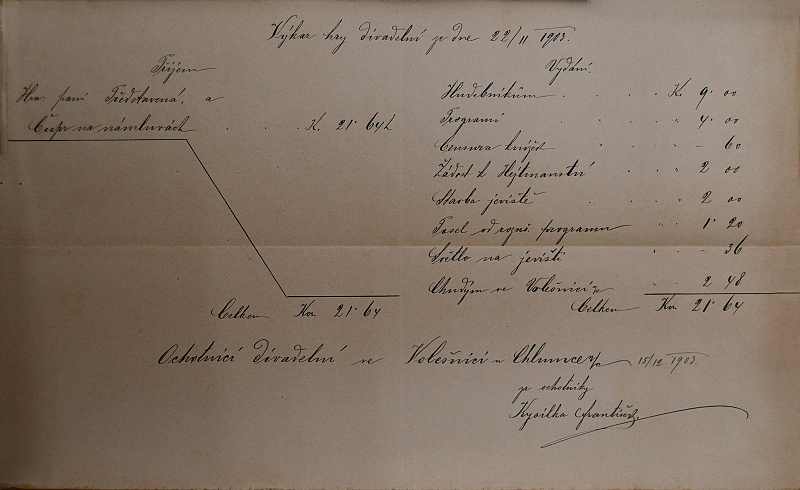 Výkaz hry divadelní ze dne 22/11 1903.
Příjem
Hra: paní Představená, a
Čupr na námluvách . . . K. 21·64h
Celkem Kor. 21·64
Vydání.
Hudebníkům . . . K. 9·00
Programi " 4·00
Censura knížek " - 60
Žádost k Hejtmanství " 2 00
Stavba jeviště . . . " 2 00
Posel od roznš. programu " 1·20
Světlo na jevišti " - 36
Chudým ve Volešnici " 2 48
Celkem Kor. 21·64
Ochotníci divadelní ve Volešnici u Chlumce n/c 15/12 1903.
za ochotníky
Kysilka František.